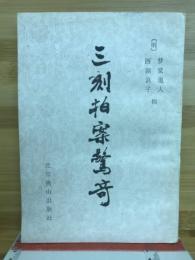 [明] 梦觉道人
西湖浪子 辑
三刻拍案驚奇
北京燕山出版社